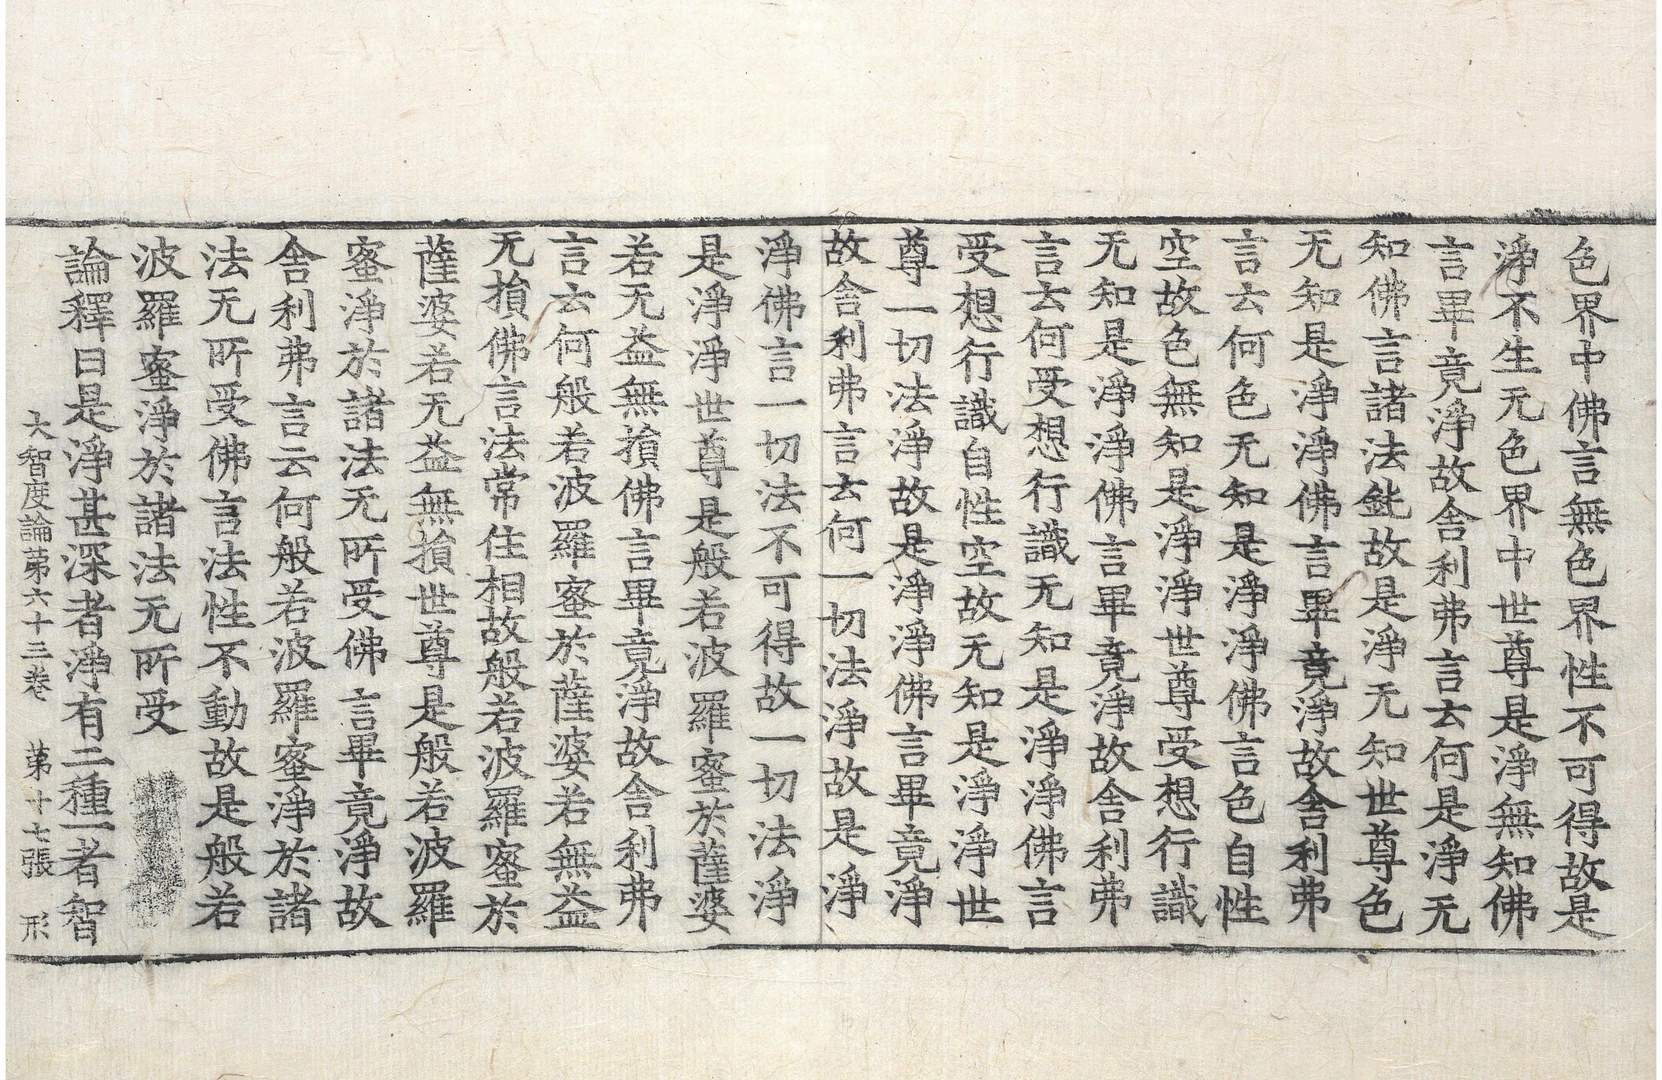 色界中佛言無色界性不可得故是
淨不生无色界中世尊是淨無知佛
言畢竟淨故舍利弗言云何是淨无
知佛言諸法鈍故是淨无知世尊色
无知是淨淨佛言畢竟淨故舍利弗
言云何色无知是淨淨佛言色自性
空故色無知是淨淨世尊受想行識
无知是淨淨佛言畢竟淨故舍利弗
言云何受想行識无知是淨淨佛言
受想行識自性空故无知是淨淨世
尊一切法淨故是淨淨佛言畢竟淨
故舍利弗言云何一切法淨故是淨
淨佛言一切法不可得故一切法淨
是淨淨世尊是般若波羅蜜於薩婆
若无益無損佛言畢竟淨故舍利弗
言云何般若波羅蜜於薩婆若無益
无損佛言法常住相故般若波羅蜜於
薩婆若无益無損世尊是般若波羅
蜜淨於諸法无所受佛言畢竟淨故
舍利弗言云何般若波羅蜜淨於諸
法无所受佛言法性不動故是般若
波羅蜜淨於諸法无所受
論釋曰是淨甚深者淨有二種一者智
大智度論苐六十三卷 苐十七張 形